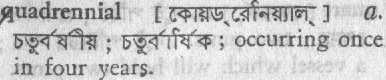 quadrennial [ কোয়ড্‌রেনিয়্যাল্‌ ] a.
চতুর্বর্ষীয় ; চতুর্বার্ষিক ; occurring once
in four years.